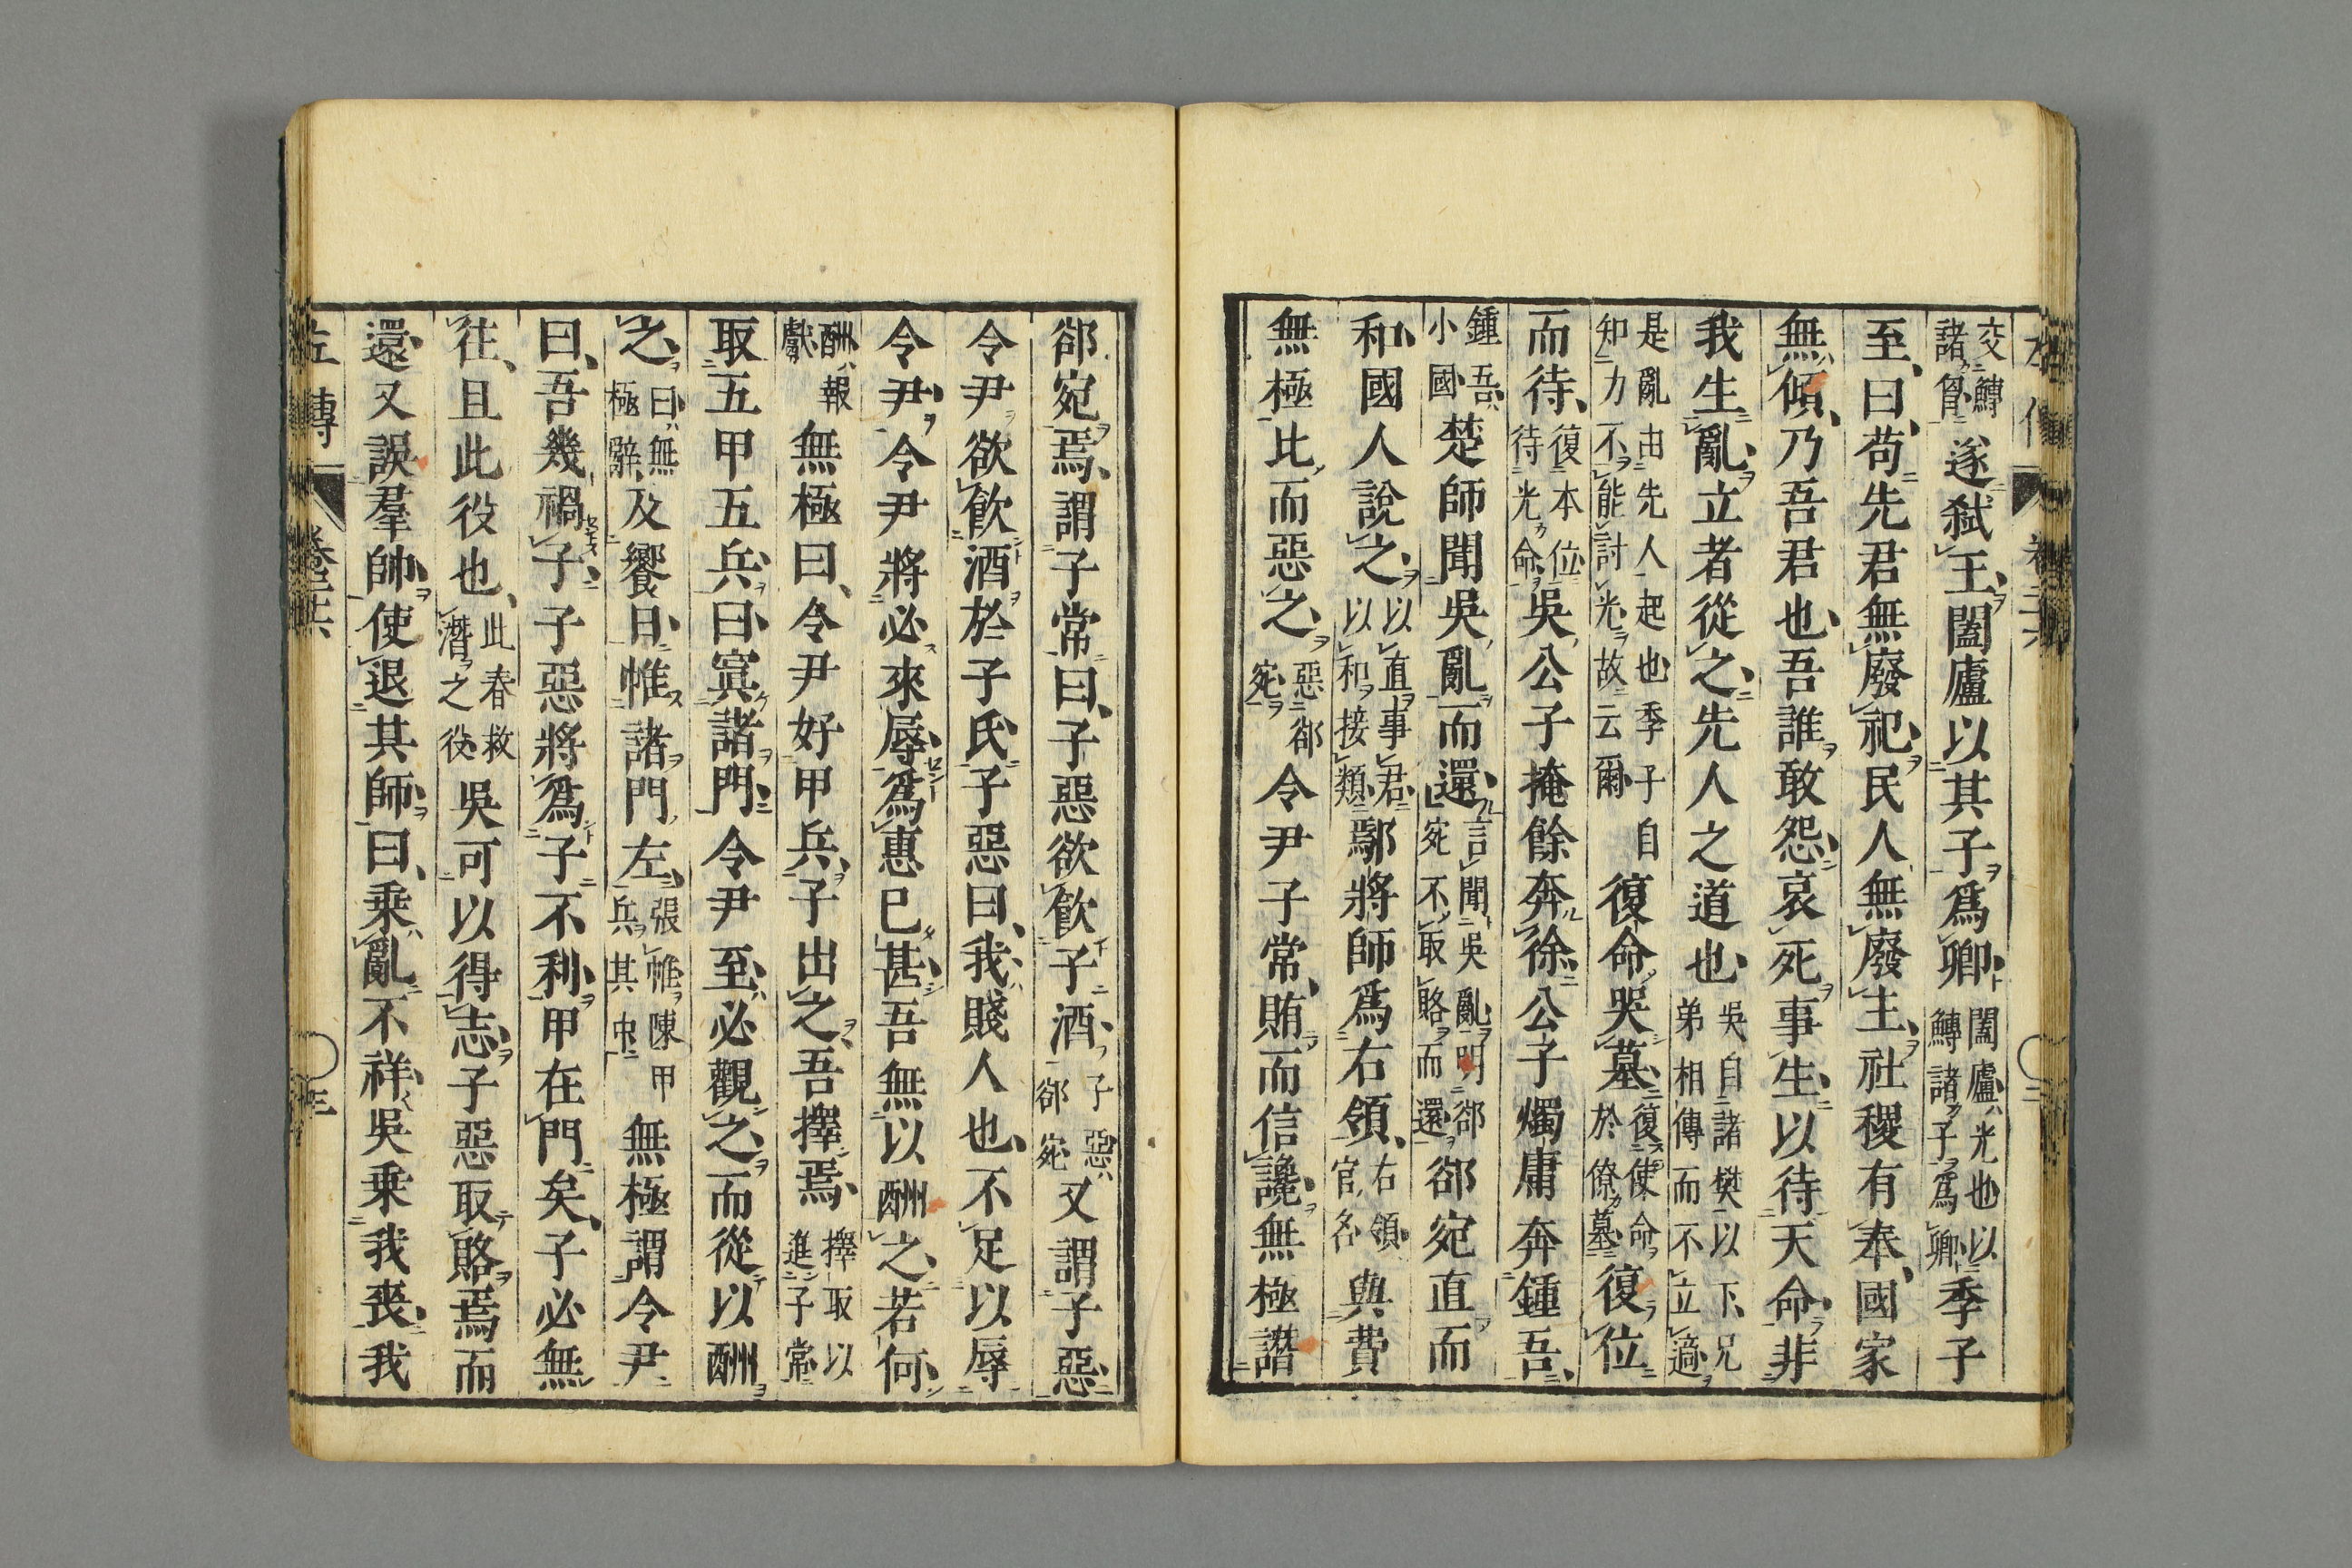 交鱄諸胷遂弑王闔廬以其子爲卿闔廬光也以鱄諸子爲卿季子
至曰苟先君無廢祀民人無廢主社稷有奉國家
無傾乃吾君也吾誰敢怨哀死事生以待天命非
我生亂立者從之先人之道也吳自諸樊以下兄弟相傳而不立適
是亂由先人起也季子自知力不能討光故云爾復命哭墓復使命於僚墓復位
而待復本位待光命吳公子掩餘奔徐公子燭庸奔鍾吾
鍾吾小國楚師聞吳亂而還言聞吳亂明郤宛不取賂而還郤宛直而
和國人說之以直事君以和接類鄢將師爲右領右領官名與費
無極比而惡之惡郤宛令尹子常賄而信讒無極譖
郤宛焉謂子常曰子惡欲飮子酒子惡郤宛又謂子惡
令尹欲飮酒於子氏子惡曰我賤人也不足以辱
令尹令尹將必來辱爲惠已甚吾無以酬之若何
酬報獻無極曰令尹好甲兵子出之吾擇焉擇取以進子常
取五甲五兵曰寘諸門令尹至必觀之而從以酬
之曰無極辭及饗日帷諸門左張帷陳甲兵其中無極謂令尹
曰吾幾禍子子惡將爲子不利甲在門矣子必無
往且此役也此春救潛之役吳可以得志子惡取賂焉而
還又誤羣帥使退其師曰乘亂不祥吳乘我喪我
左傳 卷二十六 三